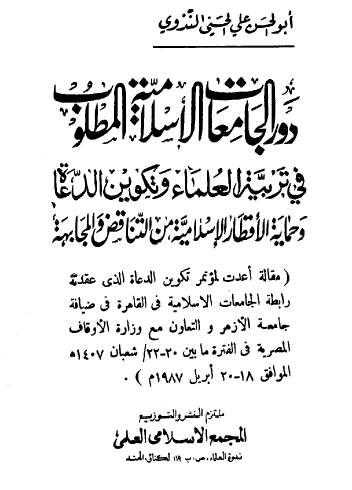 أبو الحسن علي الحسني الندوي
دور الجامعات الإسلامية المطلوب
في تربية العلماء وتكوين الدعاة
وحماية الأقطار الإسلامية من التناقض والمجابهة
( مقالة أعدت لمؤتمر تكوين الدعاة الذى عقدته
رابطة الجامعات الاسلامية فى القاهرة فى ضيافة
جامعة الأزهر و التعاون مع وزارة الأوقاف
المصرية فى الفترة ما بين ٢٠-٢٢/ شعبان ١٤٠٧ه
الموافق ١٨-٢٠ أبريل ١٩٨٧م ) .
ملتزم النشر والتوزيع
المجمع الاسلامى العلمى
ندوة العلماء، ص. ب ١١٩ لكناؤ، الهند